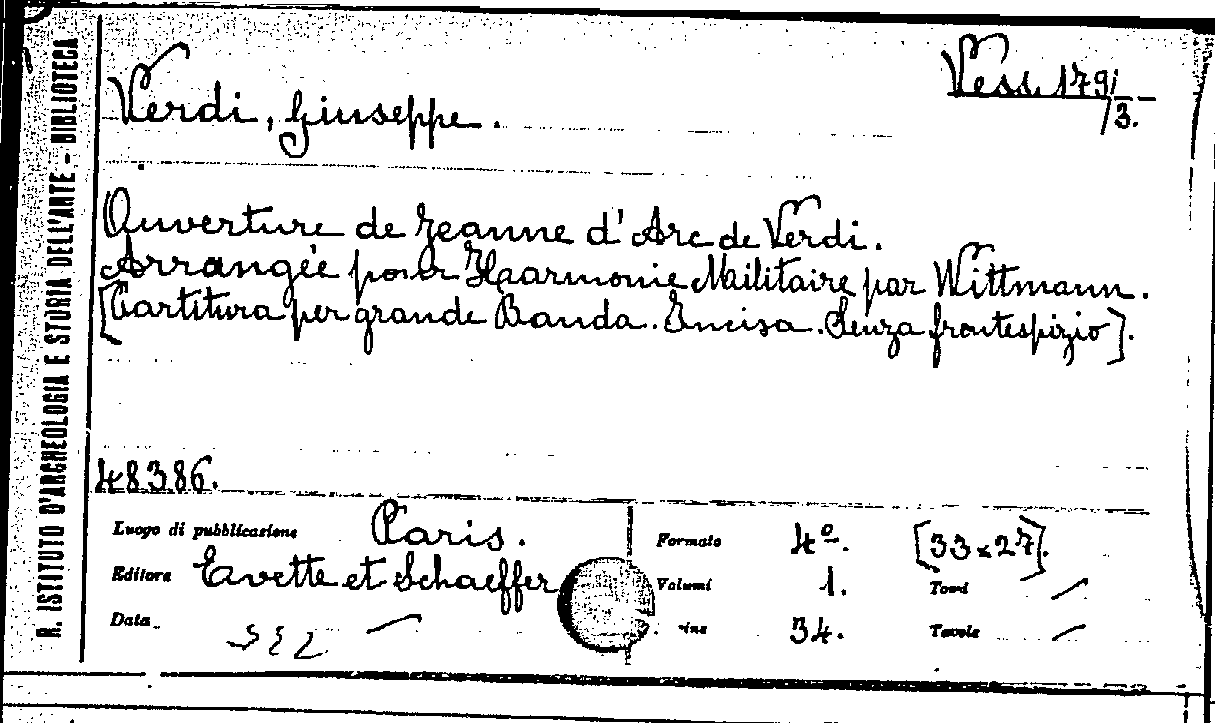 R. ISTITUTO D'ARCHEOLOGIA E STORIA DELL'ARTE - BIBLIOTECA
Vess. 179/3.
Verdi, Giuseppe.
Ouverture de Jeanne d'Arc de Verdi.
Arrangée pour Haarmonie Militaire par Wittmann.
[Partitura per grande Banda. Incisa. Senza frontespizio].
48386.
Luogo di pubblicazione Paris.
Formato 4º. [33x27].
Editore Evette et Schaeffer
Volumi 1. Tomi /
Data /
ine 34. Tavole /